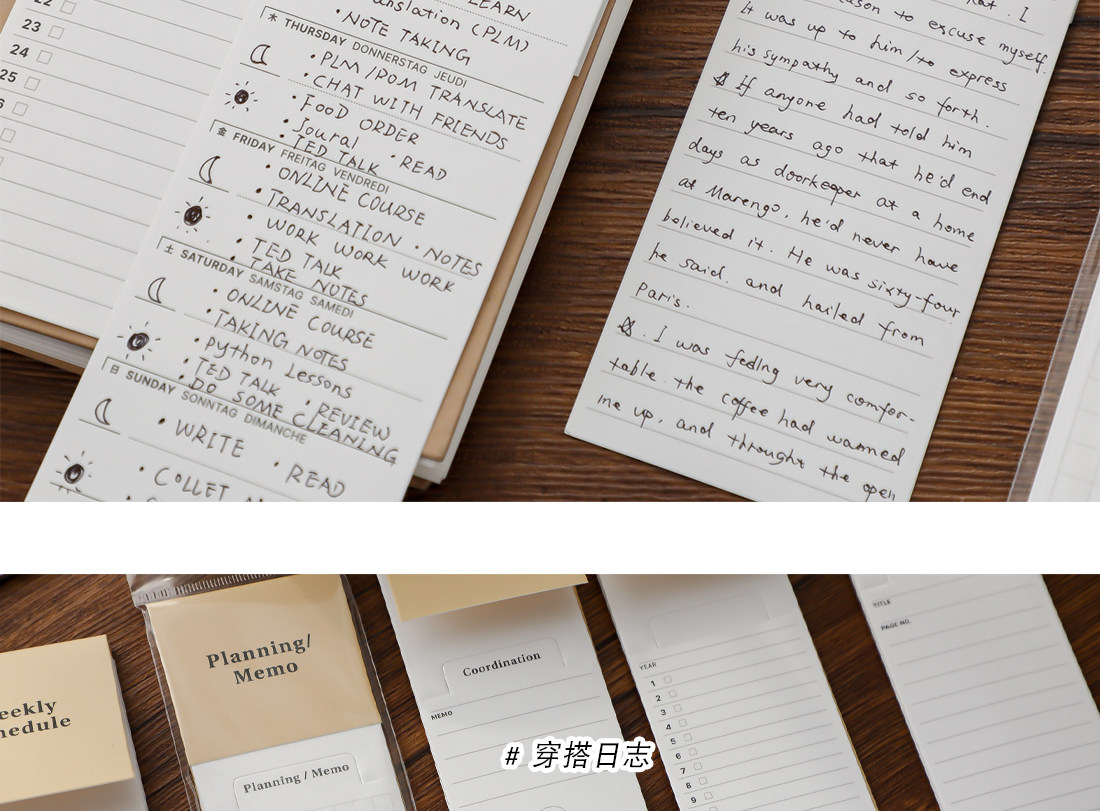 22
23
24
25
LEARN
anslation (PLM)
· NOTE TAKING
木 THURSDAY DONNERSTAG JEUDI
· PLM / POM TRANSLATE
· CHAT WITH FRIENDS
· FOOD ORDER
· Joural · READ
· TED TALK
金 FRIDAY FREITAG VENDREDI
· ONLINE COURSE
· TRANSLATION · NOTES
· WORK WORK WORK
· TED TALK
· TAKE NOTES
土 SATURDAY SAMSTAG SAMEDI
· ONLINE COURSE
· TAKING NOTES
· Python Lessons
· TED TALK · REVIEW
· DO SOME CLEANING
日 SUNDAY SONNTAG DIMANCHE
· WRITE · READ
· COLLET
that. I
eason to excuse myself.
It was up to him / to express
his sympathy and so forth.
If anyone had told him
ten years ago that he'd end
days as doorkeeper at a home
at Marengo, he'd never have
believed it. He was sixty-four
he said. and hailed from
Paris.
. I was feeling very comfor-
table. the coffee had warmed
me up, and throught the open
eekly
hedule
Planning/
Memo
Planning / Memo
Coordination
MEMO
YEAR
1
2
3
4
5
6
7
8
9
TITLE
PAGE NO.
# 穿搭日志